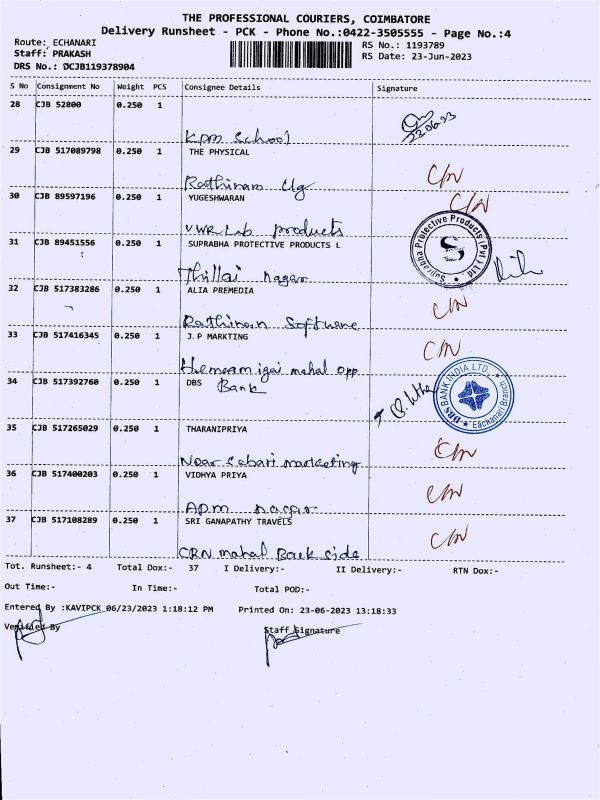 THE PROFESSIONAL COURIERS, COIMBATORE
Delivery Runsheet - PCK - Phone No.:0422-3505555 - Page No.:4
Route: ECHANARI
RS No.: 1193789
Staff: PRAKASH
RS Date: 23-Jun-2023
DRS No.: DCJB119378904
S No Consignment No Weight PCS Consignee Details Signature
28 CJB 52800 0.250 1
22.06.23
Kpm School
29 CJB 517089798 0.250 1 THE PHYSICAL
Rathinam Clg
C/N
30 CJB 89597196 0.250 1 YUGESHWARAN
C/N
VWR Lab products
31 CJB 89451556 0.250 1 SUPRABHA PROTECTIVE PRODUCTS L
Suprabha Protective Products (Pvt) Ltd
S
Thillai nagar
32 CJB 517383286 0.250 1 ALIA PREMEDIA
C/N
Rathinam Software
33 CJB 517416345 0.250 1 J.P MARKTING
C/N
mahal opp
34 CJB 517392760 0.250 1 DBS
Bank
DBS BANK INDIA LTD.,
Eachanari Branch
35 CJB 517265029 0.250 1 THARANIPRIYA
C/N
Near Sabari marketing
36 CJB 517400203 0.250 1 VIDHYA PRIYA
C/N
APM nagar
37 CJB 517108289 0.250 1 SRI GANAPATHY TRAVELS
C/N
CRN mahal Back side
Tot. Runsheet:- 4 Total Dox:- 37 I Delivery:- II Delivery:- RTN Dox:-
Out Time:- In Time:- Total POD:-
Entered By :KAVIPCK 06/23/2023 1:18:12 PM Printed On: 23-06-2023 13:18:33
Verified By Staff Signature